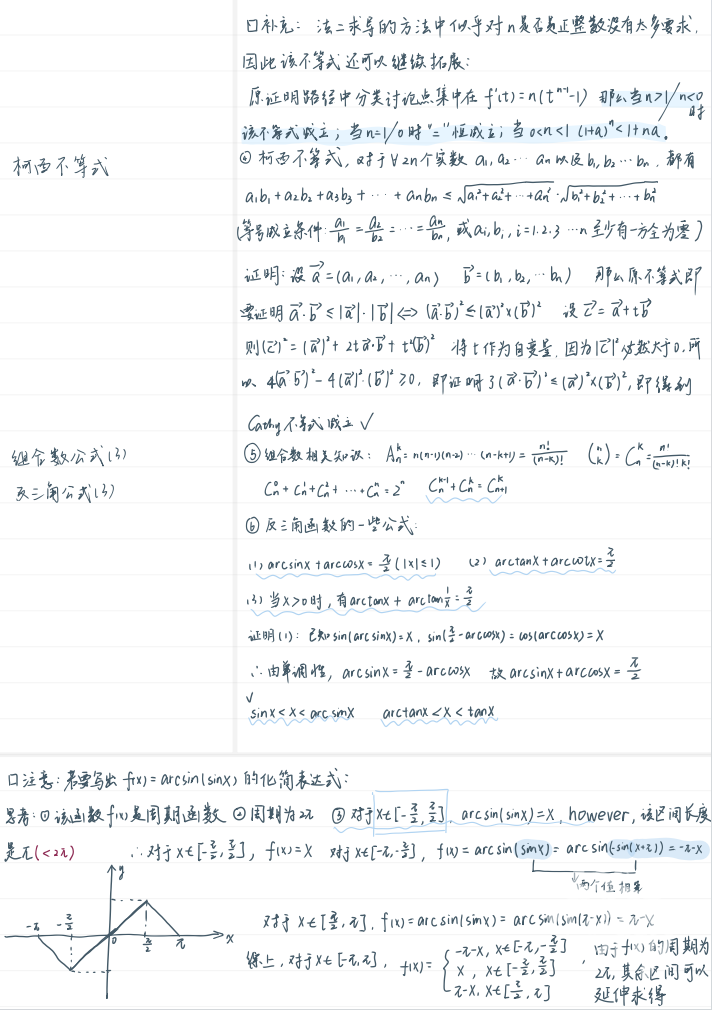 口补充: 法二求导的方法中似乎对n是否是正整数没有太多要求,
因此该不等式还可以继续拓展:
原证明路径中分类讨论点集中在 f'(t)=n(t^{n-1}-1) 那么当n>1/n<0时
该不等式成立; 当n=1/0时"="恒成立; 当0<n<1 (1+a)^n<1+na。
柯西不等式
④ 柯西不等式, 对于∀2n个实数 a₁,a₂…an以及b₁,b₂…bn, 都有
a₁b₁+a₂b₂+a₃b₃+…+anbn≤√(a₁²+a₂²+…+an²)·√(b₁²+b₂²+…+bn²)
(等号成立条件: a₁/b₁=a₂/b₂=…=an/bn, 或ai,bi, i=1.2.3…n至少有一方全为零)
证明: 设a⃗=(a₁,a₂,…,an) b⃗=(b₁,b₂,…bn) 那么原不等式即
要证明a⃗·b⃗≤|a⃗|·|b⃗|⇔(a⃗·b⃗)²≤(a⃗)²×(b⃗)² 设c⃗=a⃗+tb⃗
则(c⃗)²=(a⃗)²+2ta⃗·b⃗+t²(b⃗)² 将t作为自变量, 因为|c⃗|²必然大于0, 所
以 4(a⃗·b⃗)²-4(a⃗)²·(b⃗)²≥0, 即证明了(a⃗·b⃗)²≤(a⃗)²×(b⃗)², 即得到
Cathy不等式成立✓
组合数公式(3)
反三角公式(3)
⑤ 组合数相关知识: A_n^k=n(n-1)(n-2)…(n-k+1)=n!/(n-k)! (n k)=C_n^k=n!/((n-k)!k!)
C_n^0+C_n^1+C_n^2+…+C_n^n=2^n C_n^{k-1}+C_n^k=C_{n+1}^k
⑥ 反三角函数的一些公式:
(1) arcsinx+arccosx=π/2(|x|≤1) (2) arctanx+arccotx=π/2
(3) 当x>0时, 有arctanx+arctan1/x=π/2
证明(1): 已知sin(arcsinx)=x, sin(π/2-arccosx)=cos(arccosx)=x
∴由单调性, arcsinx=π/2-arccosx 故arcsinx+arccosx=π/2
✓
sinx<x<arcsinx arctanx<x<tanx
口注意: 若要写出 f(x)=arcsin(sinx)的化简表达式:
思考: ①该函数f(x)是周期函数 ②周期为2π ③对于x∈[-π/2,π/2], arcsin(sinx)=x, however, 该区间长度
是π(<2π) ∴对于x∈[-π/2,π/2], f(x)=x 对于x∈[-π,-π/2], f(x)=arcsin(sinx)=arcsin(-sin(x+π))=-π-x
两个值相等
y
-π -π/2 0 π/2 π x
对于x∈[π/2,π], f(x)=arcsin(sinx)=arcsin(sin(π-x))=π-x
综上, 对于x∈[-π,π], f(x)={ -π-x, x∈[-π,-π/2]
x, x∈[-π/2,π/2]
π-x, x∈[π/2,π]
, 由于f(x)的周期为
2π, 其余区间可以
延伸求得